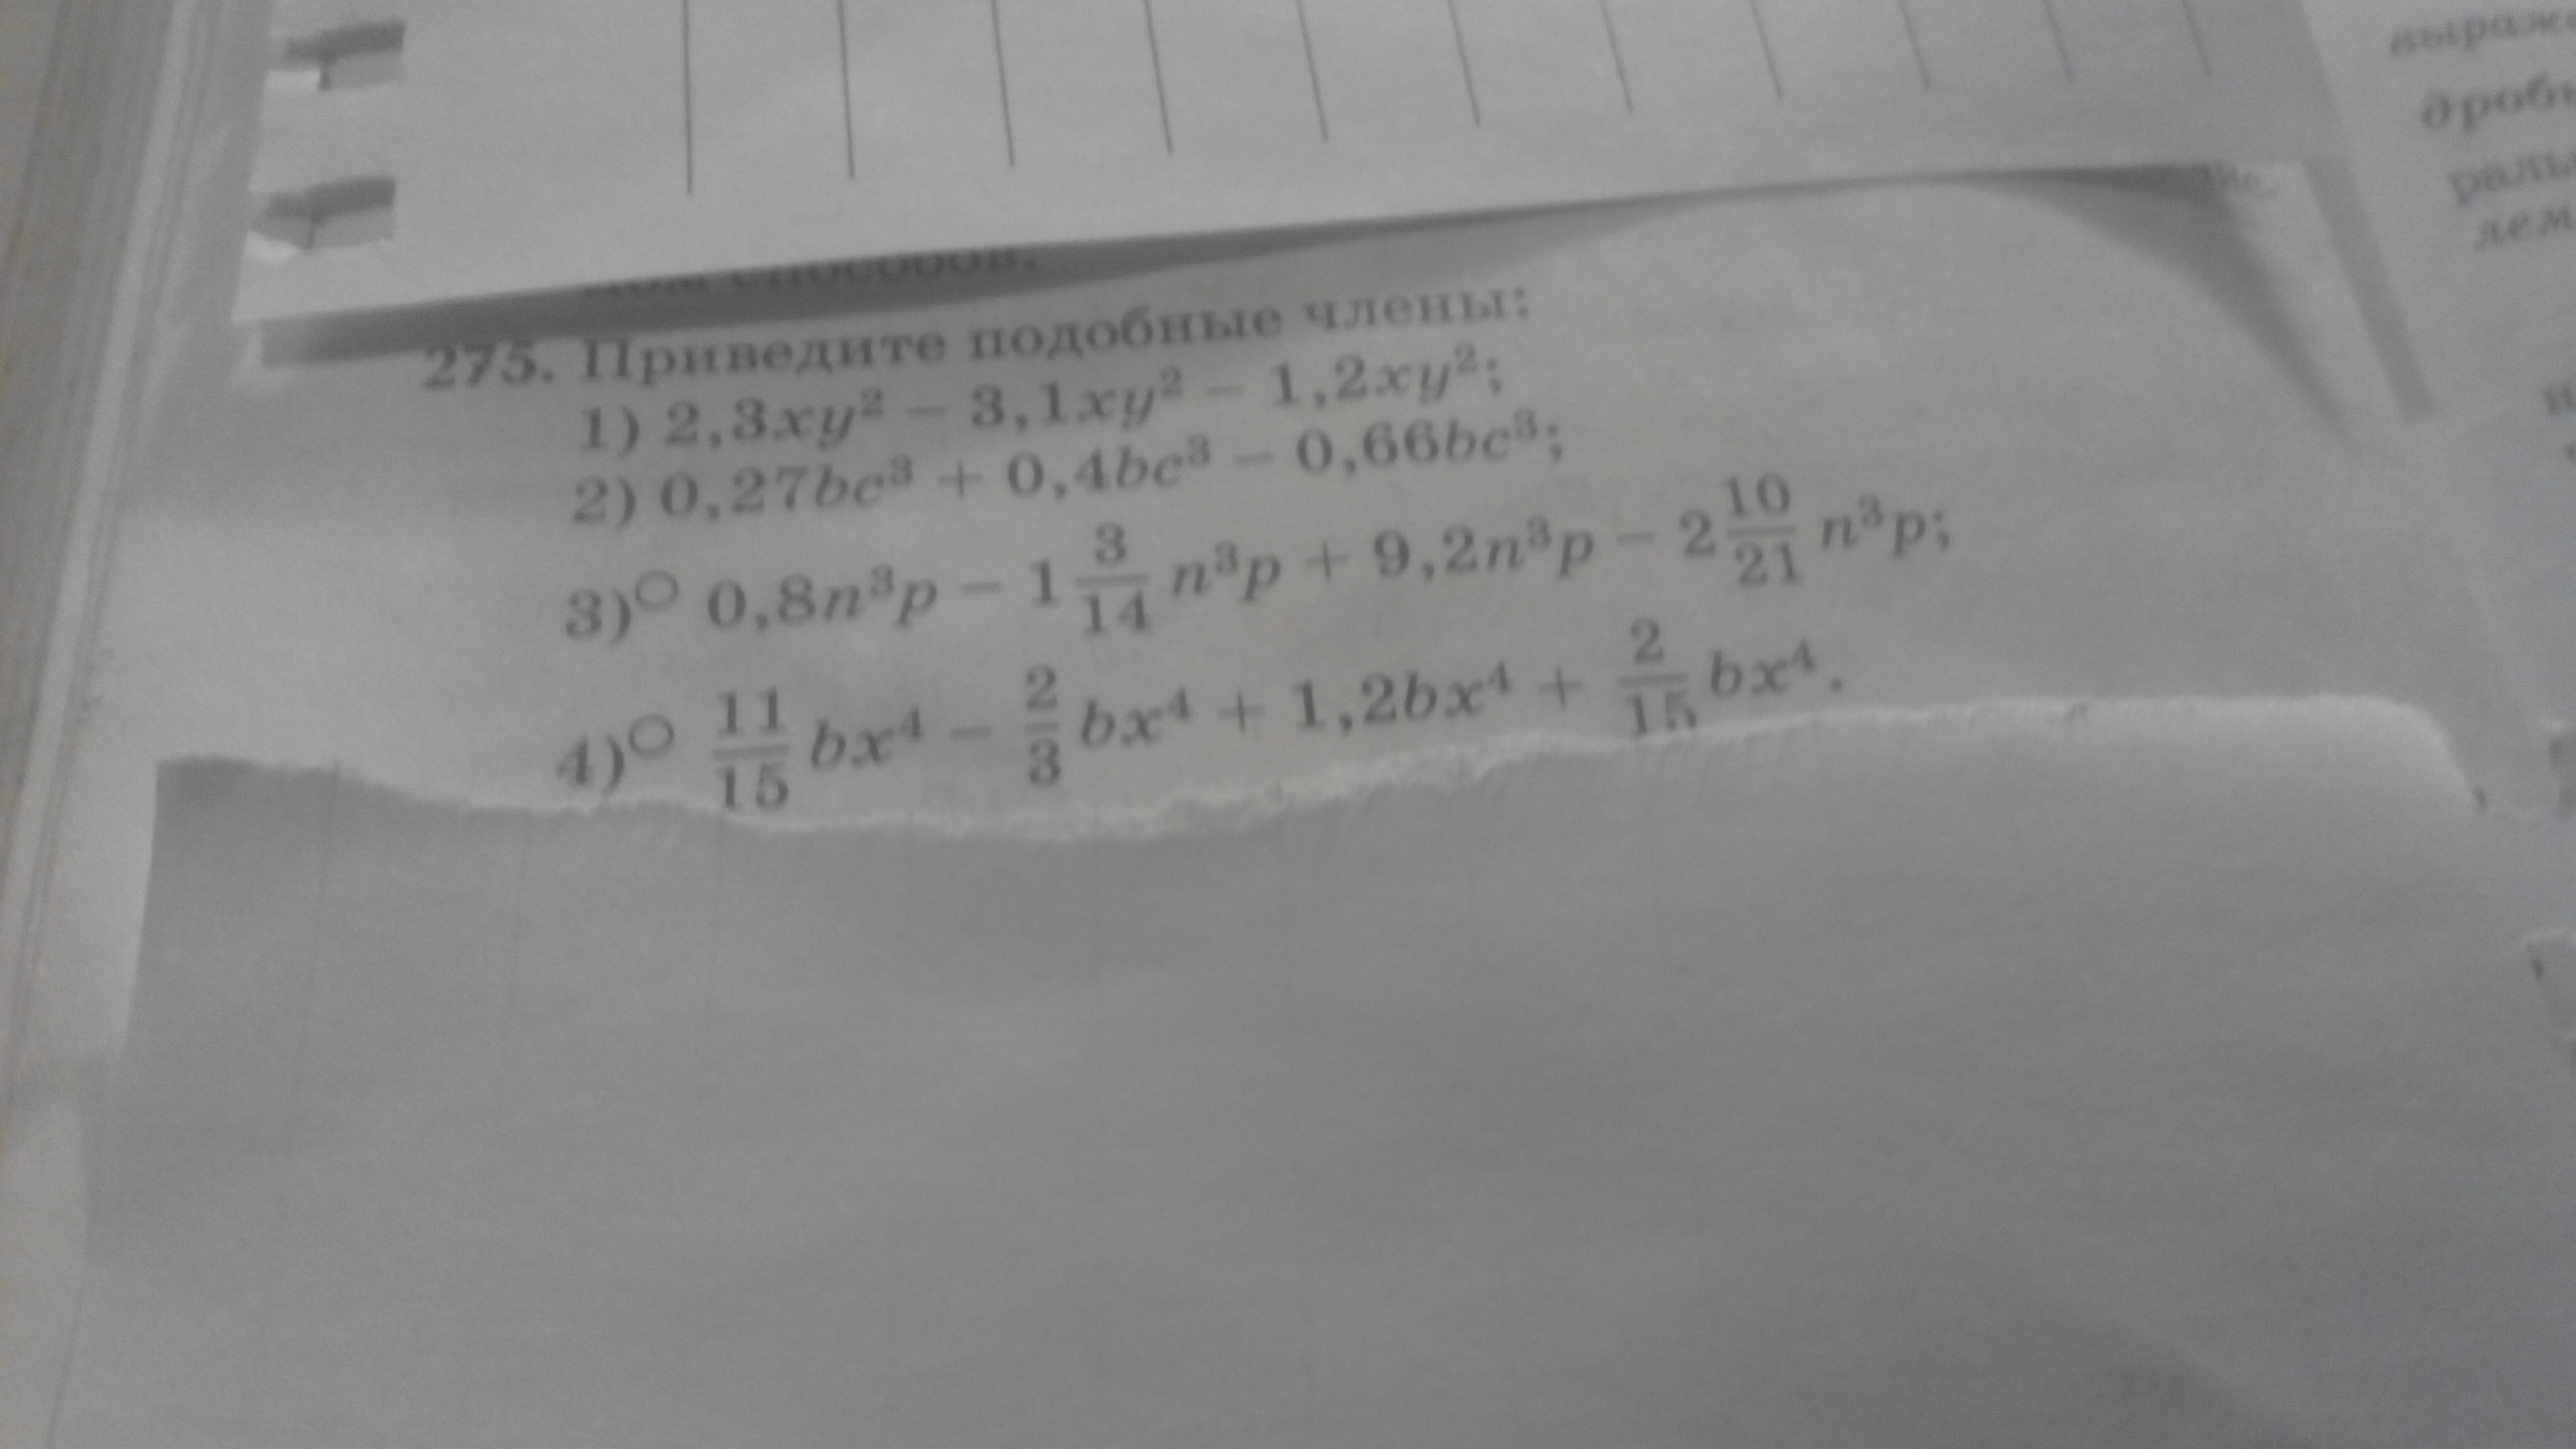 способов.
275. Приведите подобные члены:
1) 2,3xy² − 3,1xy² − 1,2xy²;
2) 0,27bc³ + 0,4bc³ − 0,66bc³;
3)○ 0,8n³p − 1 3/14 n³p + 9,2n³p − 2 10/21 n³p;
4)○ 11/15 bx⁴ − 2/3 bx⁴ + 1,2bx⁴ + 2/15 bx⁴.